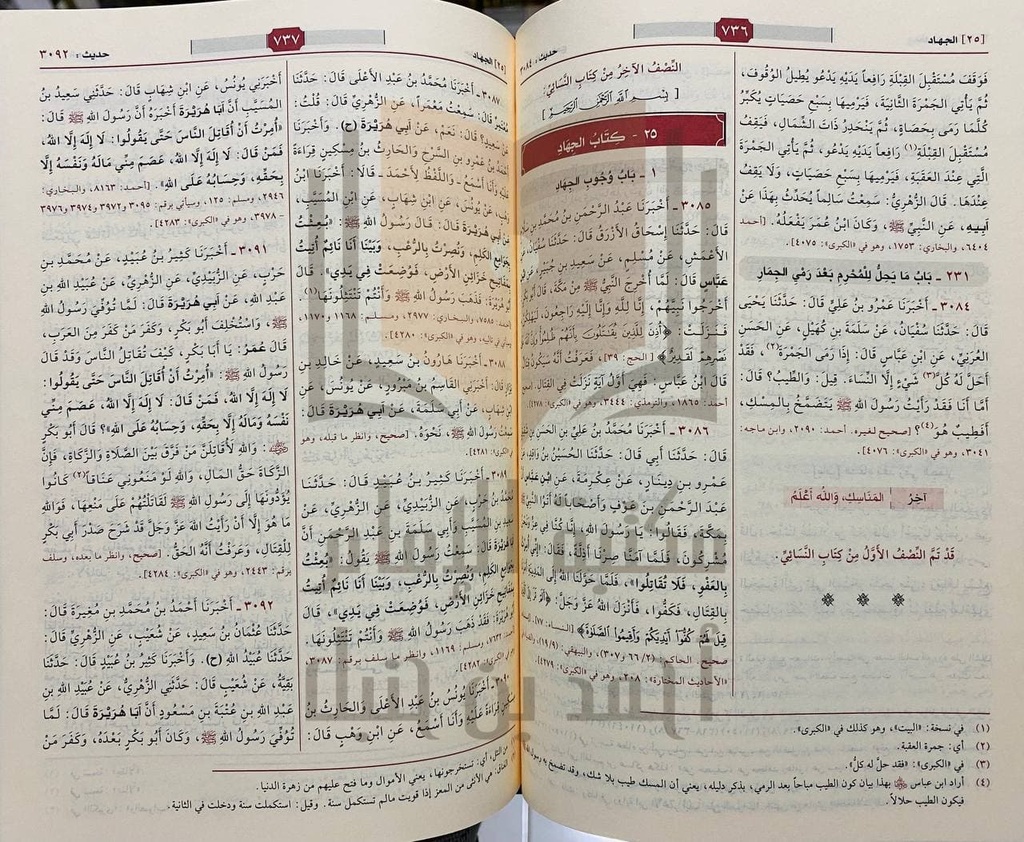 [٢٥] الجهاد
٧٣٦
حديث: ٣٠٨٤
فَوَقَفَ مُسْتَقْبِلَ القِبْلَةِ رَافِعاً يَدَيْهِ يَدْعُو يُطِيلُ الوُقُوفَ،
ثُمَّ يَأْتِي الجَمْرَةَ الثَّانِيَةَ، فَيَرْمِيهَا بِسَبْعِ حَصَيَاتٍ يُكَبِّرُ
كُلَّمَا رَمَى بِحَصَاةٍ، ثُمَّ يَنْحَدِرُ ذَاتَ الشِّمَالِ، فَيَقِفُ
مُسْتَقْبِلَ القِبْلَةِ(١) رَافِعاً يَدَيْهِ يَدْعُو، ثُمَّ يَأْتِي الجَمْرَةَ
الَّتِي عِنْدَ العَقَبَةِ، فَيَرْمِيهَا بِسَبْعِ حَصَيَاتٍ، وَلَا يَقِفُ
عِنْدَهَا. قَالَ الزُّهْرِيُّ: سَمِعْتُ سَالِماً يُحَدِّثُ بِهَذَا عَنْ
أَبِيهِ، عَنِ النَّبِيِّ ﷺ، وَكَانَ ابْنُ عُمَرَ يَفْعَلُهُ. [أحمد:
٦٤٠٤، والبخاري: ١٧٥٣، وهو في «الكبرى»: ٤٠٧٥].
٢٣١ - بَابُ مَا يَحِلُّ لِلْمُحْرِمِ بَعْدَ رَمْيِ الجِمَارِ
٣٠٨٤ - أَخْبَرَنَا عَمْرُو بنُ عَلِيٍّ قَالَ: حَدَّثَنَا يَحْيَى
قَالَ: حَدَّثَنَا سُفْيَانُ، عَنْ سَلَمَةَ بنِ كُهَيْلٍ، عَنِ الحَسَنِ
العُرَنِيِّ، عَنِ ابْنِ عَبَّاسٍ قَالَ: إِذَا رَمَى الجَمْرَةَ(٢)، فَقَدْ
أَحَلَّ لَهُ كُلُّ(٣) شَيْءٍ إِلَّا النِّسَاءَ. قِيلَ: وَالطِّيبُ؟ قَالَ:
أَمَّا أَنَا فَقَدْ رَأَيْتُ رَسُولَ اللهِ ﷺ يَتَضَمَّخُ بِالمِسْكِ،
أَفَطِيبٌ هُوَ(٤)؟ [صحيح لغيره. أحمد: ٢٠٩٠، وابن ماجه:
٣٠٤١، وهو في «الكبرى»: ٤٠٧٦].
آخِرُ المَنَاسِكِ، وَاللهُ أَعْلَمُ
قَدْ تَمَّ النِّصْفُ الأَوَّلُ مِنْ كِتَابِ النَّسَائِيِّ.
النِّصْفُ الآخِرُ مِنْ كِتَابِ النَّسَائِيِّ:
[ بِسْمِ اللهِ الرَّحْمَنِ الرَّحِيمِ ]
٢٥ - كِتَابُ الجِهَادِ
١ - بَابُ وُجُوبِ الجِهَادِ
٣٠٨٥ - أَخْبَرَنَا عَبْدُ الرَّحْمَنِ بنُ مُحَمَّدِ بنِ
قَالَ: حَدَّثَنَا إِسْحَاقُ الأَزْرَقُ قَالَ: حَدَّثَنَا سُفْيَانُ،
الأَعْمَشِ، عَنْ مُسْلِمٍ، عَنْ سَعِيدِ بنِ جُبَيْرٍ،
عَبَّاسٍ قَالَ: لَمَّا أُخْرِجَ النَّبِيُّ ﷺ مِنْ مَكَّةَ، قَالَ أَبُو
أَخْرَجُوا نَبِيَّهُمْ، إِنَّا لِلَّهِ وَإِنَّا إِلَيْهِ رَاجِعُونَ،
فَنَزَلَتْ: ﴿أُذِنَ لِلَّذِينَ يُقَاتَلُونَ بِأَنَّهُمْ ظُلِمُوا
نَصْرِهِمْ لَقَدِيرٌ﴾ [الحج: ٣٩]، فَعَرَفْتُ أَنَّهُ سَيَكُونُ
قَالَ ابْنُ عَبَّاسٍ: فَهِيَ أَوَّلُ آيَةٍ نَزَلَتْ فِي القِتَالِ.
أحمد: ١٨٦٥، والترمذي: ٣٤٤٤، وهو في «الكبرى»: ٤٢٧٨].
٣٠٨٦ - أَخْبَرَنَا مُحَمَّدُ بنُ عَلِيِّ بنِ الحَسَنِ
قَالَ: حَدَّثَنَا أَبِي قَالَ: حَدَّثَنَا الحُسَيْنُ بنُ وَاقِدٍ،
عَمْرِو بنِ دِينَارٍ، عَنْ عِكْرِمَةَ، عَنِ ابْنِ عَبَّاسٍ
عَبْدَ الرَّحْمَنِ بنَ عَوْفٍ وَأَصْحَاباً لَهُ أَتَوُا النَّبِيَّ
بِمَكَّةَ، فَقَالُوا: يَا رَسُولَ اللهِ، إِنَّا كُنَّا فِي عِزٍّ
مُشْرِكُونَ، فَلَمَّا آمَنَّا صِرْنَا أَذِلَّةً، فَقَالَ: «إِنِّي
بِالعَفْوِ، فَلَا تُقَاتِلُوا»، فَلَمَّا حَوَّلَنَا اللهُ إِلَى المَدِينَةِ
بِالقِتَالِ، فَكَفُّوا، فَأَنْزَلَ اللهُ عَزَّ وَجَلَّ: ﴿أَلَمْ تَرَ
قِيلَ لَهُمْ كُفُّوا أَيْدِيَكُمْ وَأَقِيمُوا الصَّلَاةَ﴾ [النساء: ٧٧].
صحيح. الحاكم: (٢/ ٦٦ و٣٠٧)، والبيهقي: (٩/ ١٩)،
«الأحاديث المختارة»: ٢٠٨، وهو في «الكبرى»: ٤٢٧٩].
(١) في نسخة: «البيت»، وهو كذلك في «الكبرى».
(٢) أي: جمرة العقبة.
(٣) في «الكبرى»: «فقد حلَّ له كلُّ».
(٤) أراد ابن عباس بهذا بيان كون الطيب مباحاً بعد الرمي، بذكر دليله، يعني أن المسك طيب بلا شك، وقد تضمخ به رسول
فيكون الطيب حلالاً.
[٢٥] الجهاد
٧٣٧
حديث: ٣٠٩٢
٣٠٨٧ - أَخْبَرَنَا مُحَمَّدُ بنُ عَبْدِ الأَعْلَى قَالَ: حَدَّثَنَا
مُعْتَمِرٌ قَالَ: سَمِعْتُ مَعْمَراً، عَنِ الزُّهْرِيِّ قَالَ: قُلْتُ:
عَنْ سَعِيدٍ؟ قَالَ: نَعَمْ، عَنْ أَبِي هُرَيْرَةَ (ح). وَأَخْبَرَنَا
أَحْمَدُ بنُ عَمْرِو بنِ السَّرْحِ وَالحَارِثُ بنُ مِسْكِينٍ قِرَاءَةً
عَلَيْهِ وَأَنَا أَسْمَعُ - وَاللَّفْظُ لِأَحْمَدَ - قَالَا: أَخْبَرَنَا ابْنُ
وَهْبٍ، عَنْ يُونُسَ، عَنِ ابْنِ شِهَابٍ، عَنِ ابْنِ المُسَيَّبِ،
عَنْ أَبِي هُرَيْرَةَ قَالَ: قَالَ رَسُولُ اللهِ ﷺ: «بُعِثْتُ
بِجَوَامِعِ الكَلِمِ، وَنُصِرْتُ بِالرُّعْبِ، وَبَيْنَا أَنَا نَائِمٌ أُتِيتُ
بِمَفَاتِيحِ خَزَائِنِ الأَرْضِ، فَوُضِعَتْ فِي يَدِي». قَالَ
أَبُو هُرَيْرَةَ: فَذَهَبَ رَسُولُ اللهِ ﷺ وَأَنْتُمْ تَنْتَثِلُونَهَا(١).
[أحمد: ٧٥٨٥، والبخاري: ٢٩٧٧، ومسلم: ١١٦٨ و١١٧٠،
وسيأتي في تاليه، وهو في «الكبرى»: ٤٢٨٠].
٣٠٨٨ - أَخْبَرَنَا هَارُونُ بنُ سَعِيدٍ، عَنْ خَالِدِ بنِ
نِزَارٍ قَالَ: أَخْبَرَنِي القَاسِمُ بنُ مَبْرُورٍ، عَنْ يُونُسَ، عَنِ
ابْنِ شِهَابٍ، عَنْ أَبِي سَلَمَةَ، عَنْ أَبِي هُرَيْرَةَ قَالَ:
سَمِعْتُ رَسُولَ اللهِ ﷺ، نَحْوَهُ. [صحيح، وانظر ما قبله، وهو
في «الكبرى»: ٤٢٨١].
٣٠٨٩ - أَخْبَرَنَا كَثِيرُ بنُ عُبَيْدٍ قَالَ: حَدَّثَنَا
مُحَمَّدُ بنُ حَرْبٍ، عَنِ الزُّبَيْدِيِّ، عَنِ الزُّهْرِيِّ، عَنْ
سَعِيدِ بنِ المُسَيَّبِ وَأَبِي سَلَمَةَ بنِ عَبْدِ الرَّحْمَنِ أَنَّ
أَبَا هُرَيْرَةَ قَالَ: سَمِعْتُ رَسُولَ اللهِ ﷺ يَقُولُ: «بُعِثْتُ
بِجَوَامِعِ الكَلِمِ، وَنُصِرْتُ بِالرُّعْبِ، وَبَيْنَا أَنَا نَائِمٌ أُتِيتُ
بِمَفَاتِيحِ خَزَائِنِ الأَرْضِ، فَوُضِعَتْ فِي يَدِي»، قَالَ
أَبُو هُرَيْرَةَ: فَقَدْ ذَهَبَ رَسُولُ اللهِ ﷺ وَأَنْتُمْ تَنْتَثِلُونَهَا.
[أحمد: ٧٦٣٢، ومسلم: ١١٦٩، وانظر ما سلف برقم: ٣٠٨٧،
وهو في «الكبرى»: ٤٢٨٢].
٣٠٩٠ - أَخْبَرَنَا يُونُسُ بنُ عَبْدِ الأَعْلَى وَالحَارِثُ بنُ
مِسْكِينٍ قِرَاءَةً عَلَيْهِ وَأَنَا أَسْمَعُ، عَنِ ابْنِ وَهْبٍ قَالَ:
أَخْبَرَنِي يُونُسُ، عَنِ ابْنِ شِهَابٍ قَالَ: حَدَّثَنِي سَعِيدُ بنُ
المُسَيَّبِ أَنَّ أَبَا هُرَيْرَةَ أَخْبَرَهُ أَنَّ رَسُولَ اللهِ ﷺ قَالَ:
«أُمِرْتُ أَنْ أُقَاتِلَ النَّاسَ حَتَّى يَقُولُوا: لَا إِلَهَ إِلَّا اللهُ،
فَمَنْ قَالَ: لَا إِلَهَ إِلَّا اللهُ، عَصَمَ مِنِّي مَالَهُ وَنَفْسَهُ إِلَّا
بِحَقِّهِ، وَحِسَابُهُ عَلَى اللهِ». [أحمد: ٨١٦٣، والبخاري:
٢٩٤٦، ومسلم: ١٢٥، وسيأتي برقم: ٣٠٩٥ و٣٩٧٢ و٣٩٧٤ و٣٩٧٦
- ٣٩٧٨، وهو في «الكبرى»: ٤٢٨٣].
٣٠٩١ - أَخْبَرَنَا كَثِيرُ بنُ عُبَيْدٍ، عَنْ مُحَمَّدِ بنِ
حَرْبٍ، عَنِ الزُّبَيْدِيِّ، عَنِ الزُّهْرِيِّ، عَنْ عُبَيْدِ اللهِ بنِ
عَبْدِ اللهِ، عَنْ أَبِي هُرَيْرَةَ قَالَ: لَمَّا تُوُفِّيَ رَسُولُ اللهِ
ﷺ، وَاسْتُخْلِفَ أَبُو بَكْرٍ، وَكَفَرَ مَنْ كَفَرَ مِنَ العَرَبِ،
قَالَ عُمَرُ: يَا أَبَا بَكْرٍ، كَيْفَ تُقَاتِلُ النَّاسَ وَقَدْ قَالَ
رَسُولُ اللهِ ﷺ: «أُمِرْتُ أَنْ أُقَاتِلَ النَّاسَ حَتَّى يَقُولُوا:
لَا إِلَهَ إِلَّا اللهُ، فَمَنْ قَالَ: لَا إِلَهَ إِلَّا اللهُ، عَصَمَ مِنِّي
نَفْسَهُ وَمَالَهُ إِلَّا بِحَقِّهِ، وَحِسَابُهُ عَلَى اللهِ»؟ قَالَ أَبُو بَكْرٍ
: وَاللهِ لَأُقَاتِلَنَّ مَنْ فَرَّقَ بَيْنَ الصَّلَاةِ وَالزَّكَاةِ، فَإِنَّ
الزَّكَاةَ حَقُّ المَالِ، وَاللهِ لَوْ مَنَعُونِي عَنَاقاً(٢) كَانُوا
يُؤَدُّونَهَا إِلَى رَسُولِ اللهِ ﷺ لَقَاتَلْتُهُمْ عَلَى مَنْعِهَا، فَوَاللهِ
مَا هُوَ إِلَّا أَنْ رَأَيْتُ اللهَ عَزَّ وَجَلَّ قَدْ شَرَحَ صَدْرَ أَبِي بَكْرٍ
لِلْقِتَالِ، وَعَرَفْتُ أَنَّهُ الحَقُّ. [صحيح، وانظر ما بعده، وسلف
برقم: ٢٤٤٣، وهو في «الكبرى»: ٤٢٨٤].
٣٠٩٢ - أَخْبَرَنَا أَحْمَدُ بنُ مُحَمَّدِ بنِ مُغِيرَةَ قَالَ:
حَدَّثَنَا عُثْمَانُ بنُ سَعِيدٍ، عَنْ شُعَيْبٍ، عَنِ الزُّهْرِيِّ قَالَ:
حَدَّثَنَا عُبَيْدُ اللهِ (ح). وَأَخْبَرَنَا كَثِيرُ بنُ عُبَيْدٍ قَالَ: حَدَّثَنَا
بَقِيَّةُ، عَنْ شُعَيْبٍ قَالَ: حَدَّثَنِي الزُّهْرِيُّ، عَنْ عُبَيْدِ اللهِ بنِ
عَبْدِ اللهِ بنِ عُتْبَةَ بنِ مَسْعُودٍ أَنَّ أَبَا هُرَيْرَةَ قَالَ: لَمَّا
تُوُفِّيَ رَسُولُ اللهِ ﷺ، وَكَانَ أَبُو بَكْرٍ بَعْدَهُ، وَكَفَرَ مَنْ
من النثل، أي: تستخرجونها، يعني الأموال وما فتح عليهم من زهرة الدنيا.
العناق: هي الأنثى من المعز إذا قويت مالم تستكمل سنة. وقيل: استكملت سنة ودخلت في الثانية.